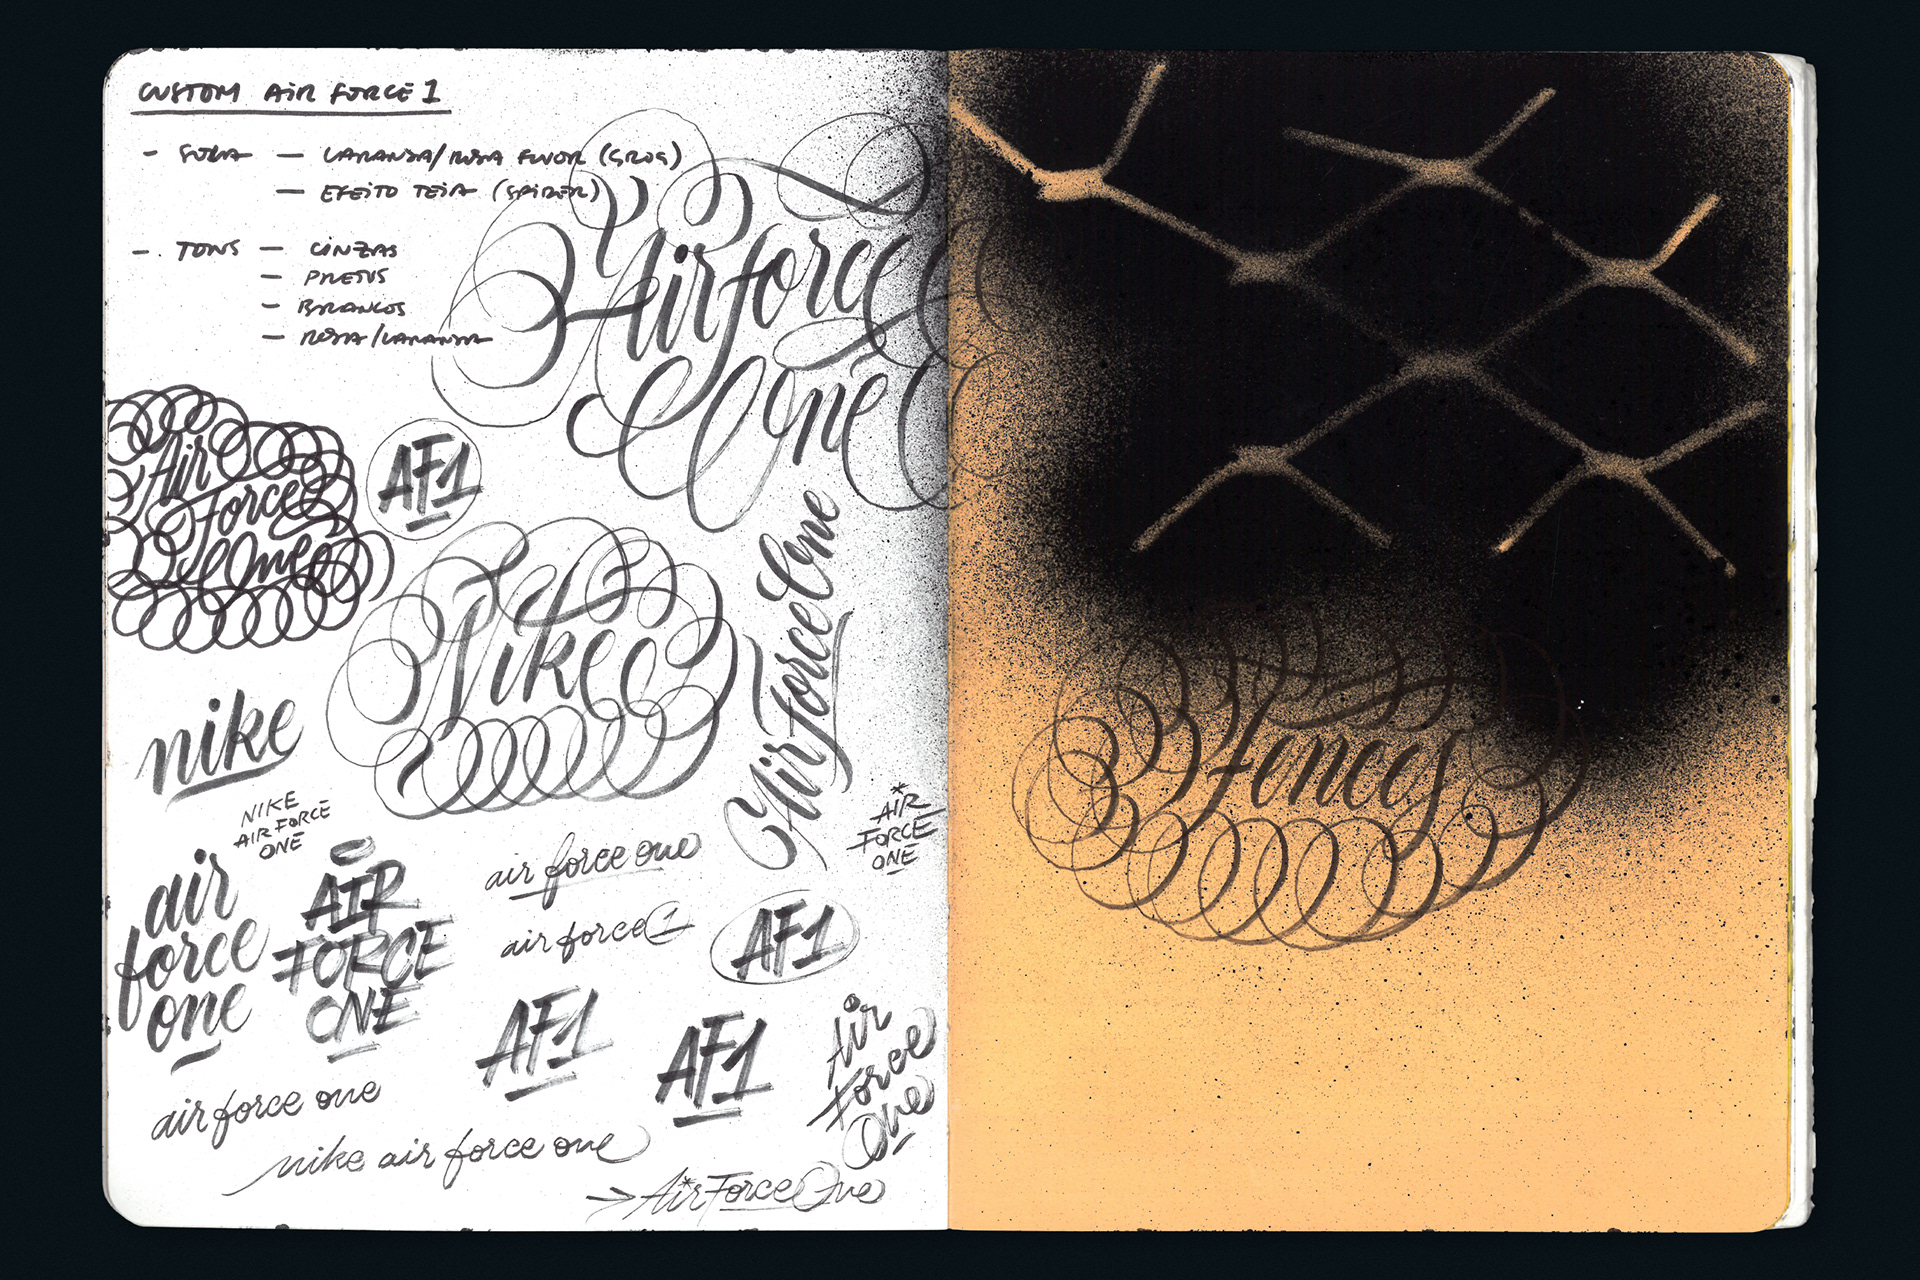 CUSTOM AIR FORCE 1
- SOLA - LARANJA/ROSA FLUOR (GROG)
- EFEITO TEIA (SPIDER)
- TONS - CINZAS
- PRETOS
- BRANCOS
- ROSA/LARANJA
Air force
One
Air
Force
One
AF1
Nike
Air Force One
nike
NIKE
AIR FORCE
ONE
AIR
FORCE
ONE
air
force
one
AIR
FORCE
ONE
air force one
air force 1
AF1
AF1
AF1
Air
Force
One
air force one
nike air force one
Air Force One
fences